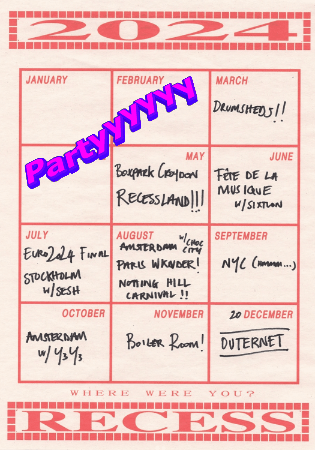 2024
JANUARY
FEBRUARY
MARCH
DRUMSHEDS!!
Partyyyyyyy
MAY
BOXPARK CROYDON
RECESSLAND!!!
JUNE
FÊTE DE LA
MUSIQUE
W/SIXTION
JULY
EURO2024 FINAL
STOCKHOLM
W/SESH
AUGUST
AMSTERDAM W/CHOC
CITY
PARIS WKNDER!
NOTHING HILL
CARNIVAL!!
SEPTEMBER
NYC (HMMM...)
OCTOBER
AMSTERDAM
W/ Y3Y3
NOVEMBER
BOILER ROOM!
20 DECEMBER
OUTERNET
WHERE WERE YOU?
RECESS